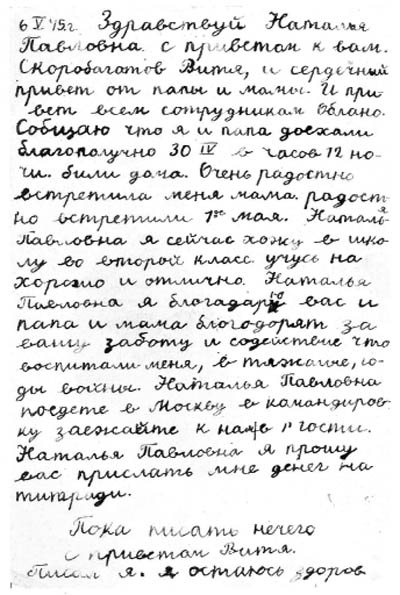 6 V 45г. Здравствуй Наталья
Павловна с приветом к вам.
Скоробагатов Витя, и сердечный
привет от папы и мамы. И при-
вет всем сотрудникам Облано.
Собщаю что я и папа доехали
благополучно 30 IV в часов 12 но-
чи. били дома. Очень радостно
встретила меня мама. радост-
но встретили 1ое мая. Наталья
Павловна я сейчас хожу в шко-
лу во второй класс. учусь на
хорошо и отлично. Наталья
Павловна я благадарю вас и
папа и мама благодорят за
вашу заботу и содействие что
воспитали меня, в тяжолие, го-
ды войны. Наталья Павловна
поедете в Москву в командиров-
ку заежайте к нам в гости.
Наталья Павловна я прошу
вас прислать мне денег на
титради.
Пока писать нечего
с приветом Витя.
Писал я. я остаюсь здоров